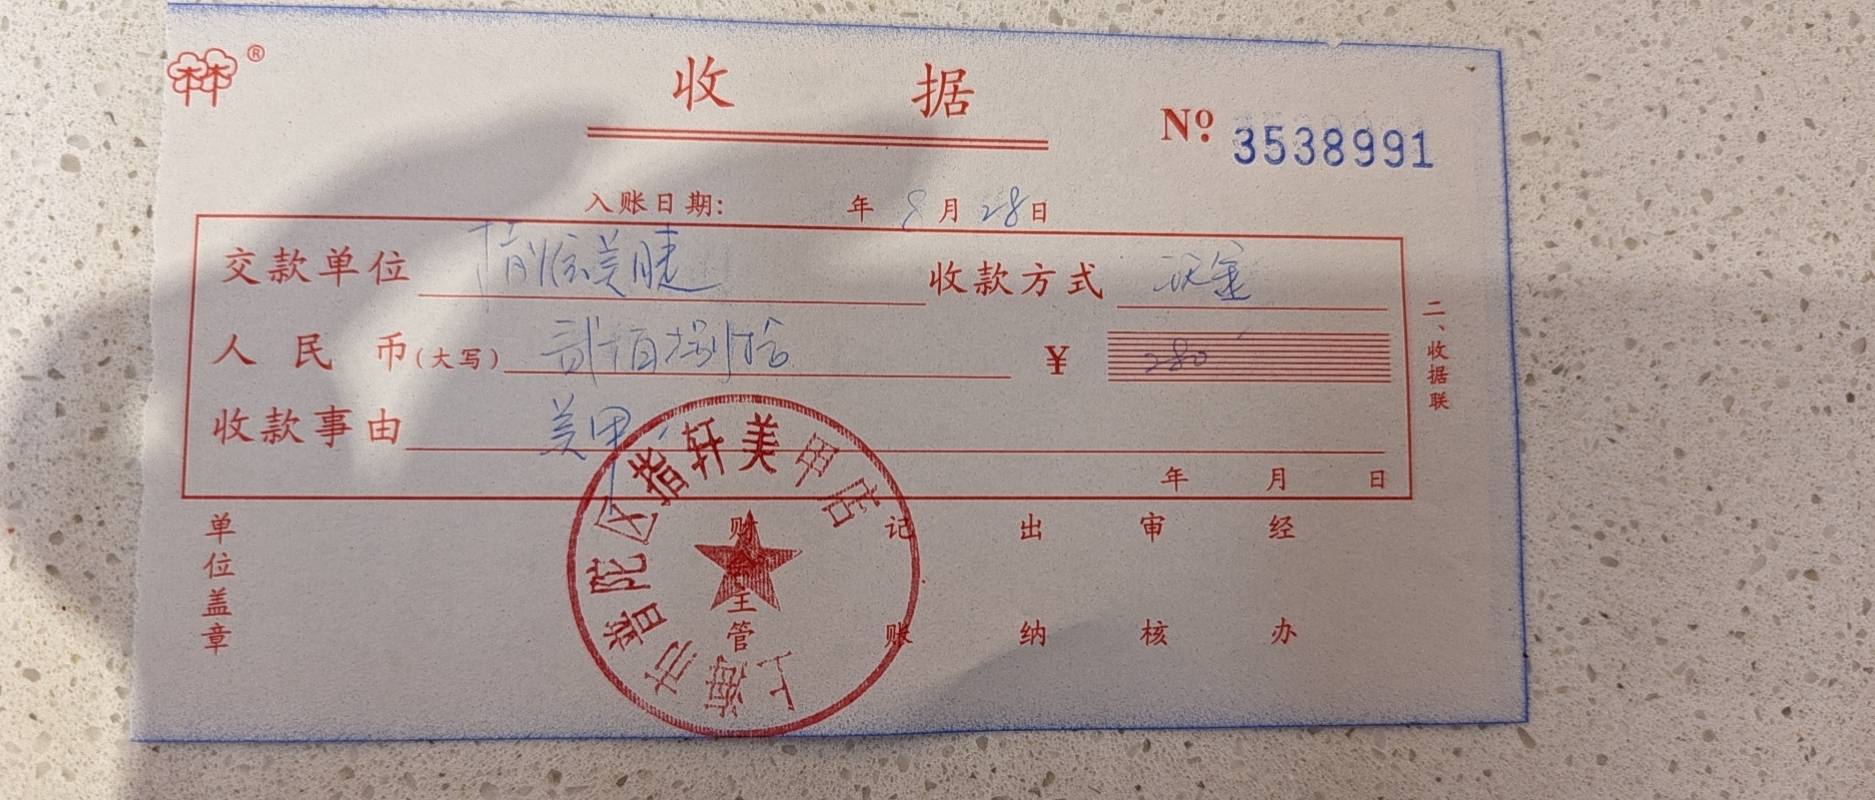 林®
收 据
Nº 3538991
入账日期: 年 8月28日
交款单位 美睫 收款方式 现金
人民币(大写) 贰佰捌拾 ¥ 280
收款事由 美甲
年 月 日
二、收据联
单位盖章
财会主管 记账 出纳 审核 经办
上海市普陀区指轩美甲店